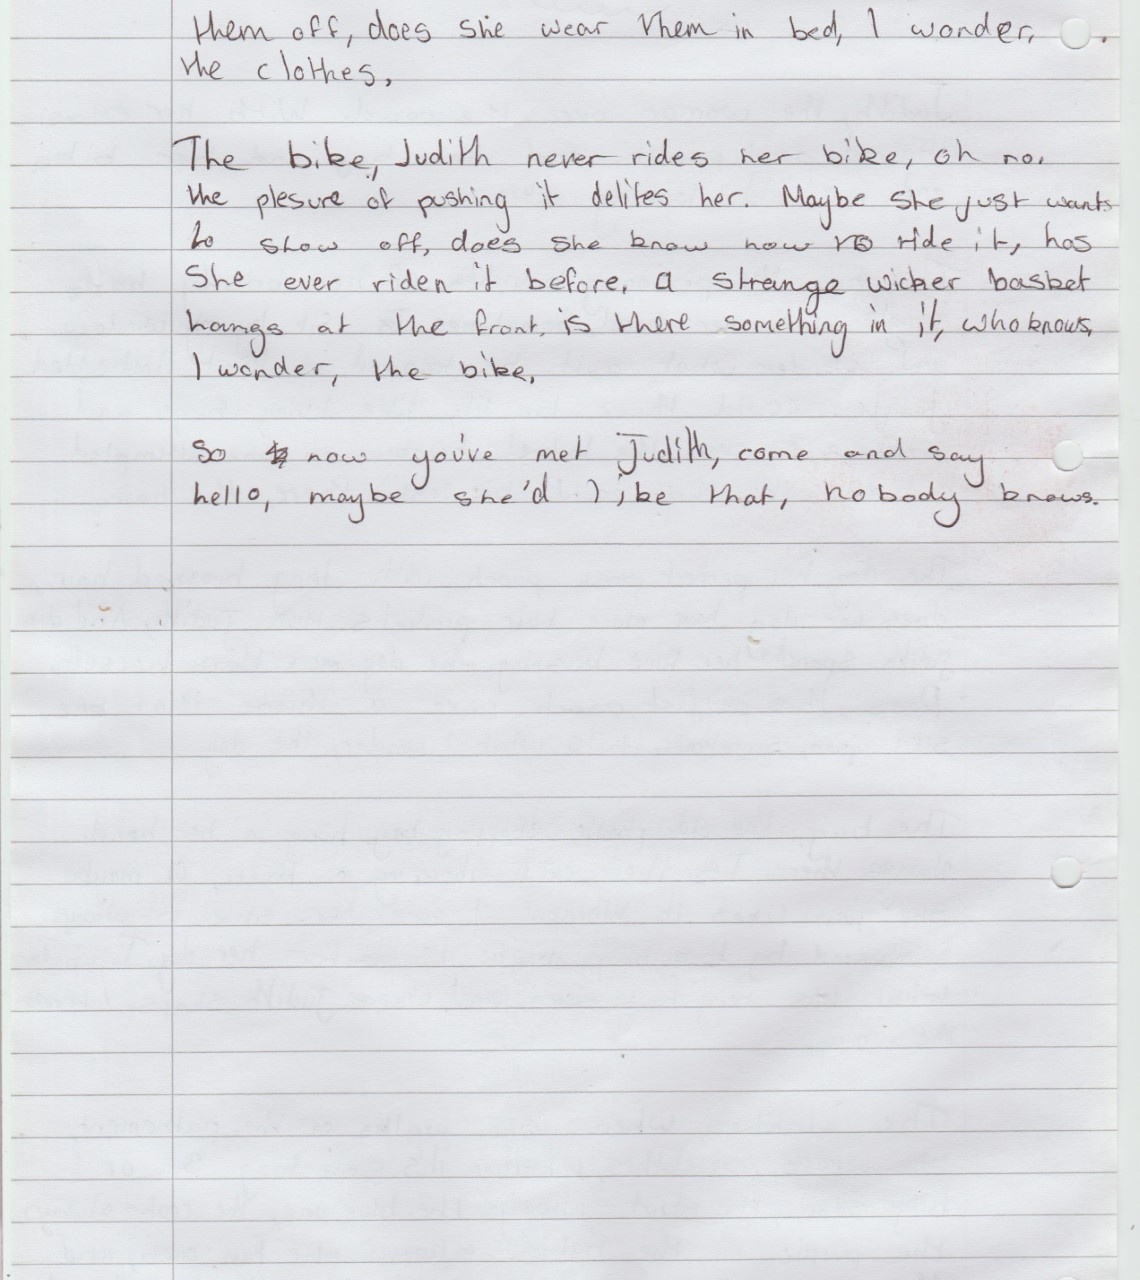 them off, does she wear them in bed, I wonder,
the clothes,
The bike, Judith never rides her bike, oh no.
the plesure of pushing it delites her. Maybe she just wants
to show off, does she know how to ride it, has
she ever riden it before, a strange wicker basket
hangs at the front, is there something in it, who knows,
I wonder, the bike,
So now you've met Judith, come and say
hello, maybe she'd like that, nobody knows.